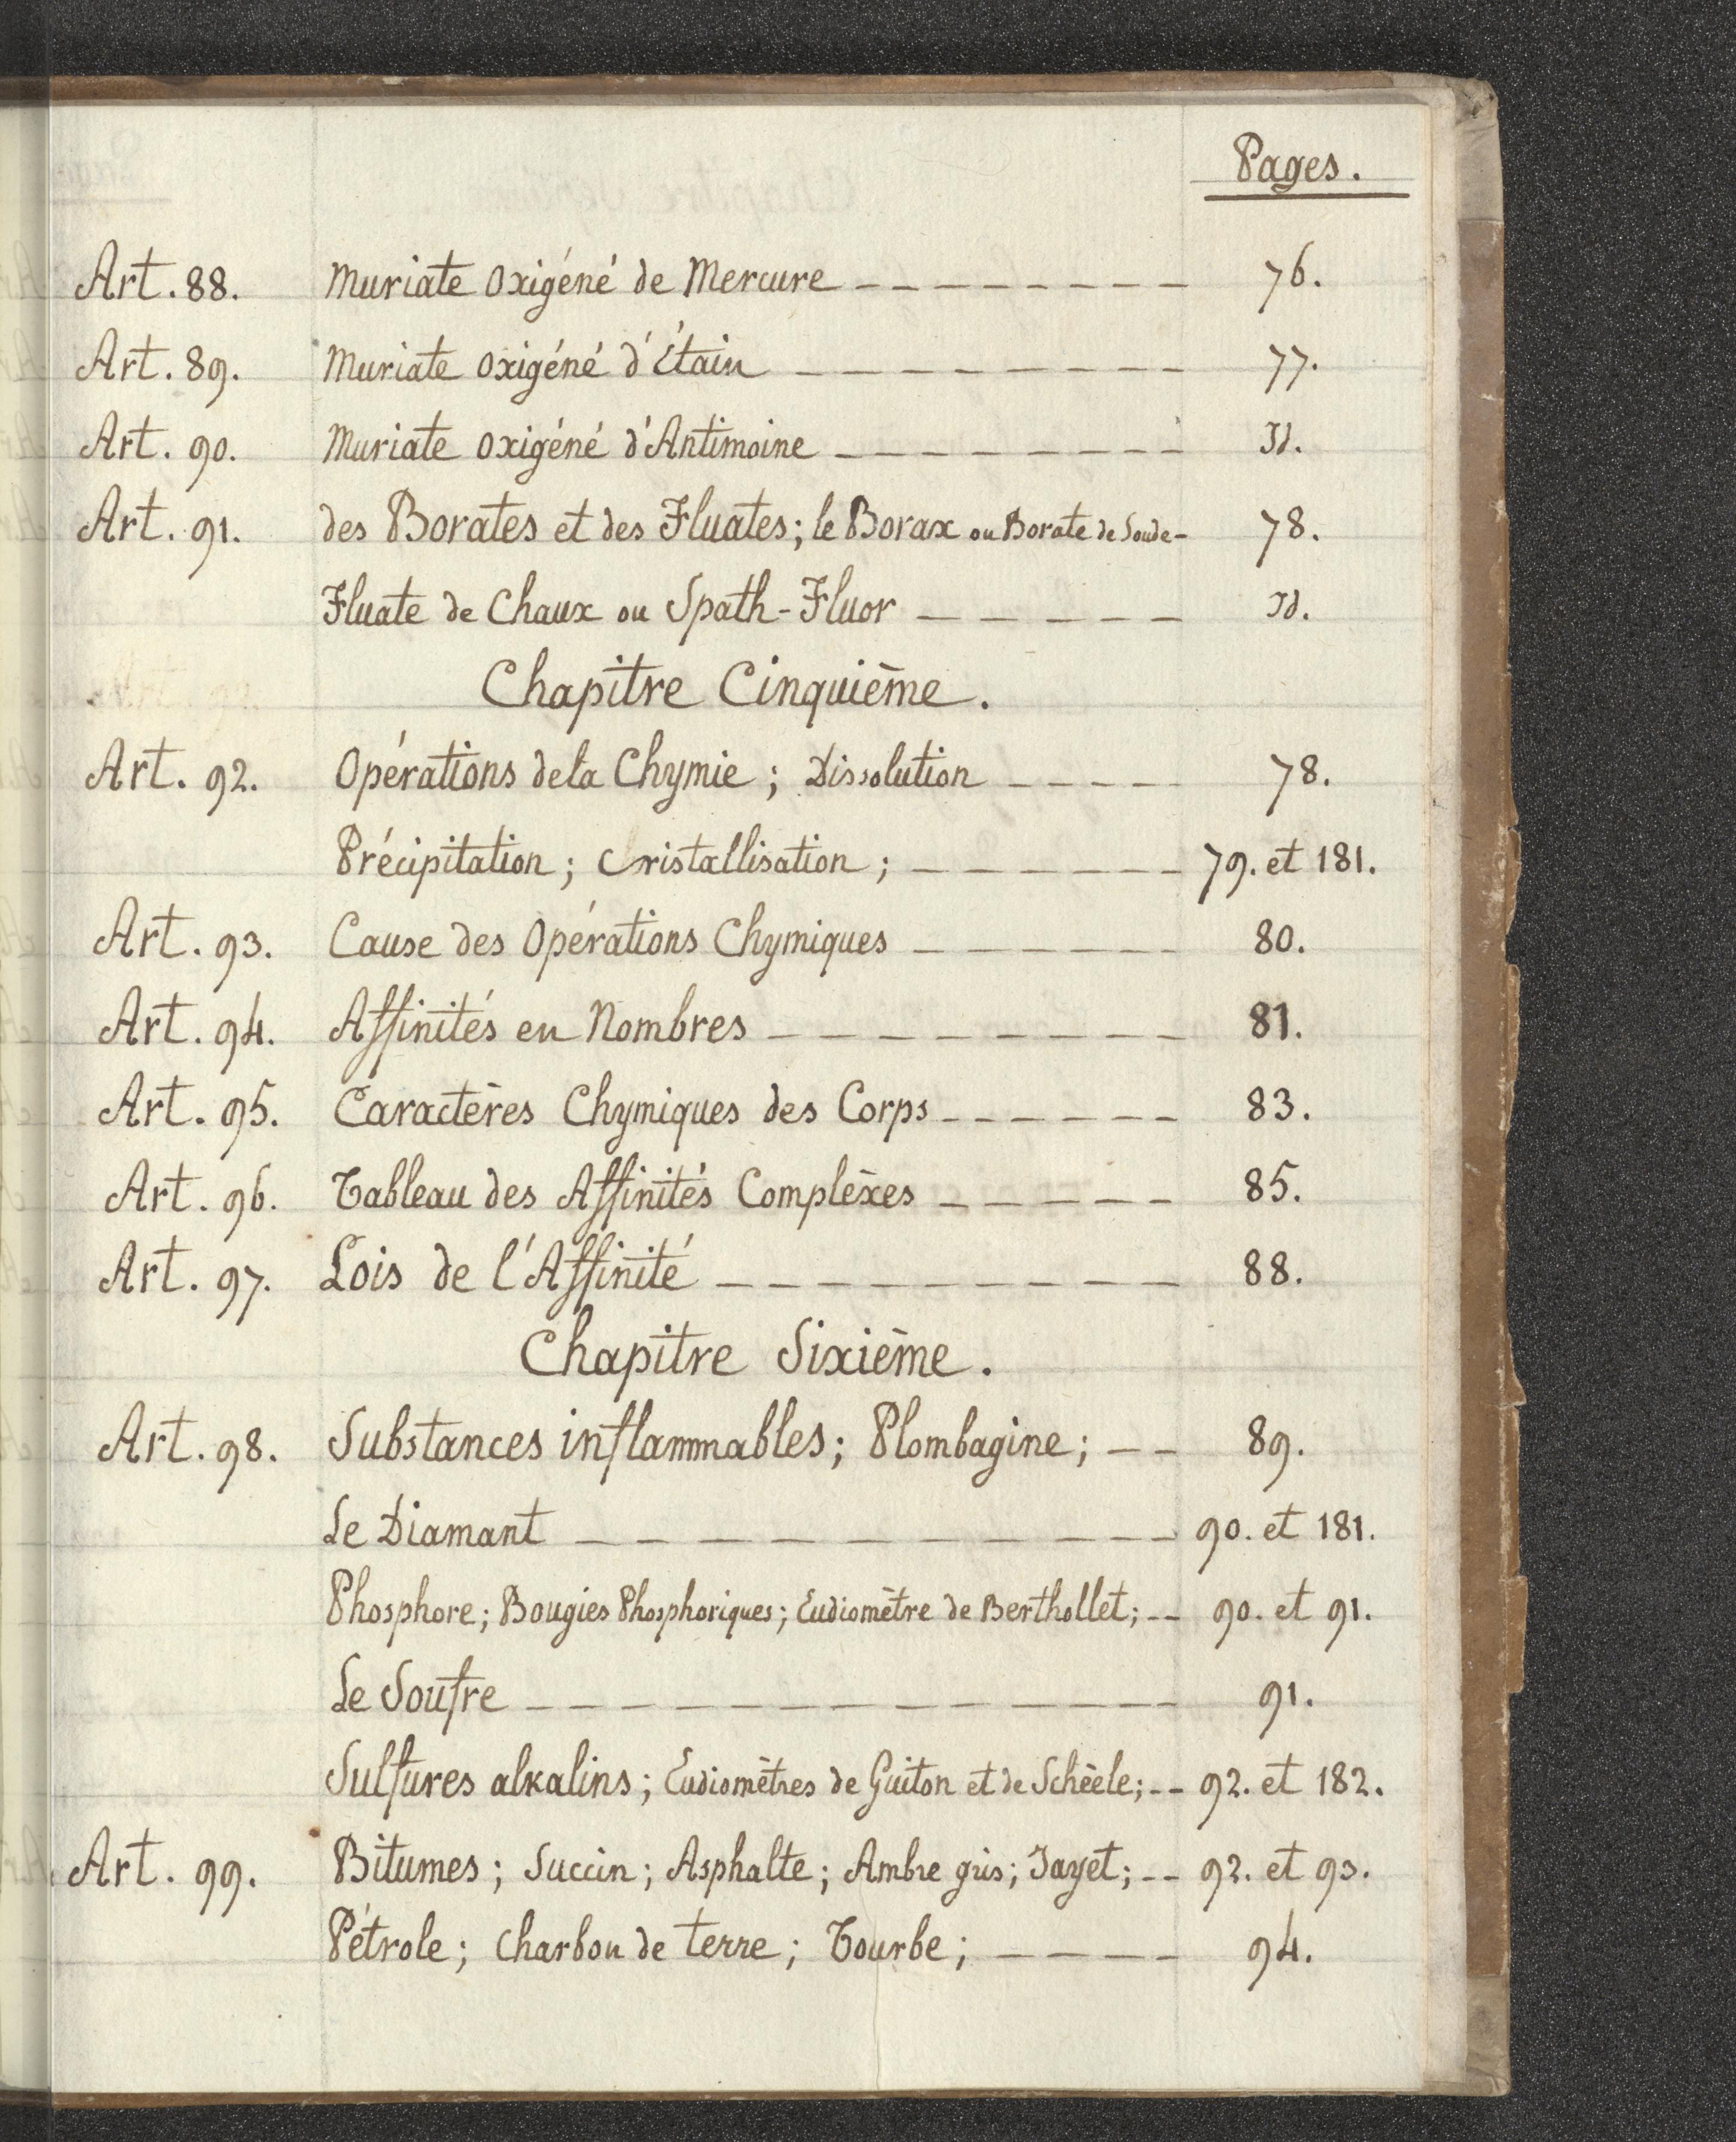 Pages.
Art. 88. Muriate Oxigéné de Mercure - - - - - - - - - 76.
Art. 89. Muriate Oxigéné d'Étain - - - - - - - - - 77.
Art. 90. Muriate Oxigéné d'Antimoine - - - - - - - - - Id.
Art. 91. des Borates et des Fluates; le Borax ou Borate de Soude - 78.
Fluate de Chaux ou Spath-Fluor - - - - - - Id.
Chapitre Cinquième.
Art. 92. Opérations dela Chymie; Dissolution - - - - - 78.
Précipitation; Cristallisation; - - - - - - - 79. et 181.
Art. 93. Cause des Opérations Chymiques - - - - - - - 80.
Art. 94. Affinités en Nombres - - - - - - - - - 81.
Art. 95. Caractères Chymiques des Corps - - - - - - 83.
Art. 96. Tableau des Affinités Complèxes - - - - - 85.
Art. 97. Lois de l'Affinité - - - - - - - - - - 88.
Chapitre Sixième.
Art. 98. Substances inflammables; Plombagine; - - 89.
Le Diamant - - - - - - - - - - - 90. et 181.
Phosphore; Bougies Phosphoriques; Eudiomètre de Berthollet; - - 90. et 91.
Le Soufre - - - - - - - - - - - - - 91.
Sulfures alkalins; Eudiomètres de Guiton et de Schèele; - - 92. et 182.
Art. 99. Bitumes; Succin; Asphalte; Ambre gris; Jayet; - - 92. et 93.
Pétrole; Charbon de terre; Tourbe; - - - - 94.